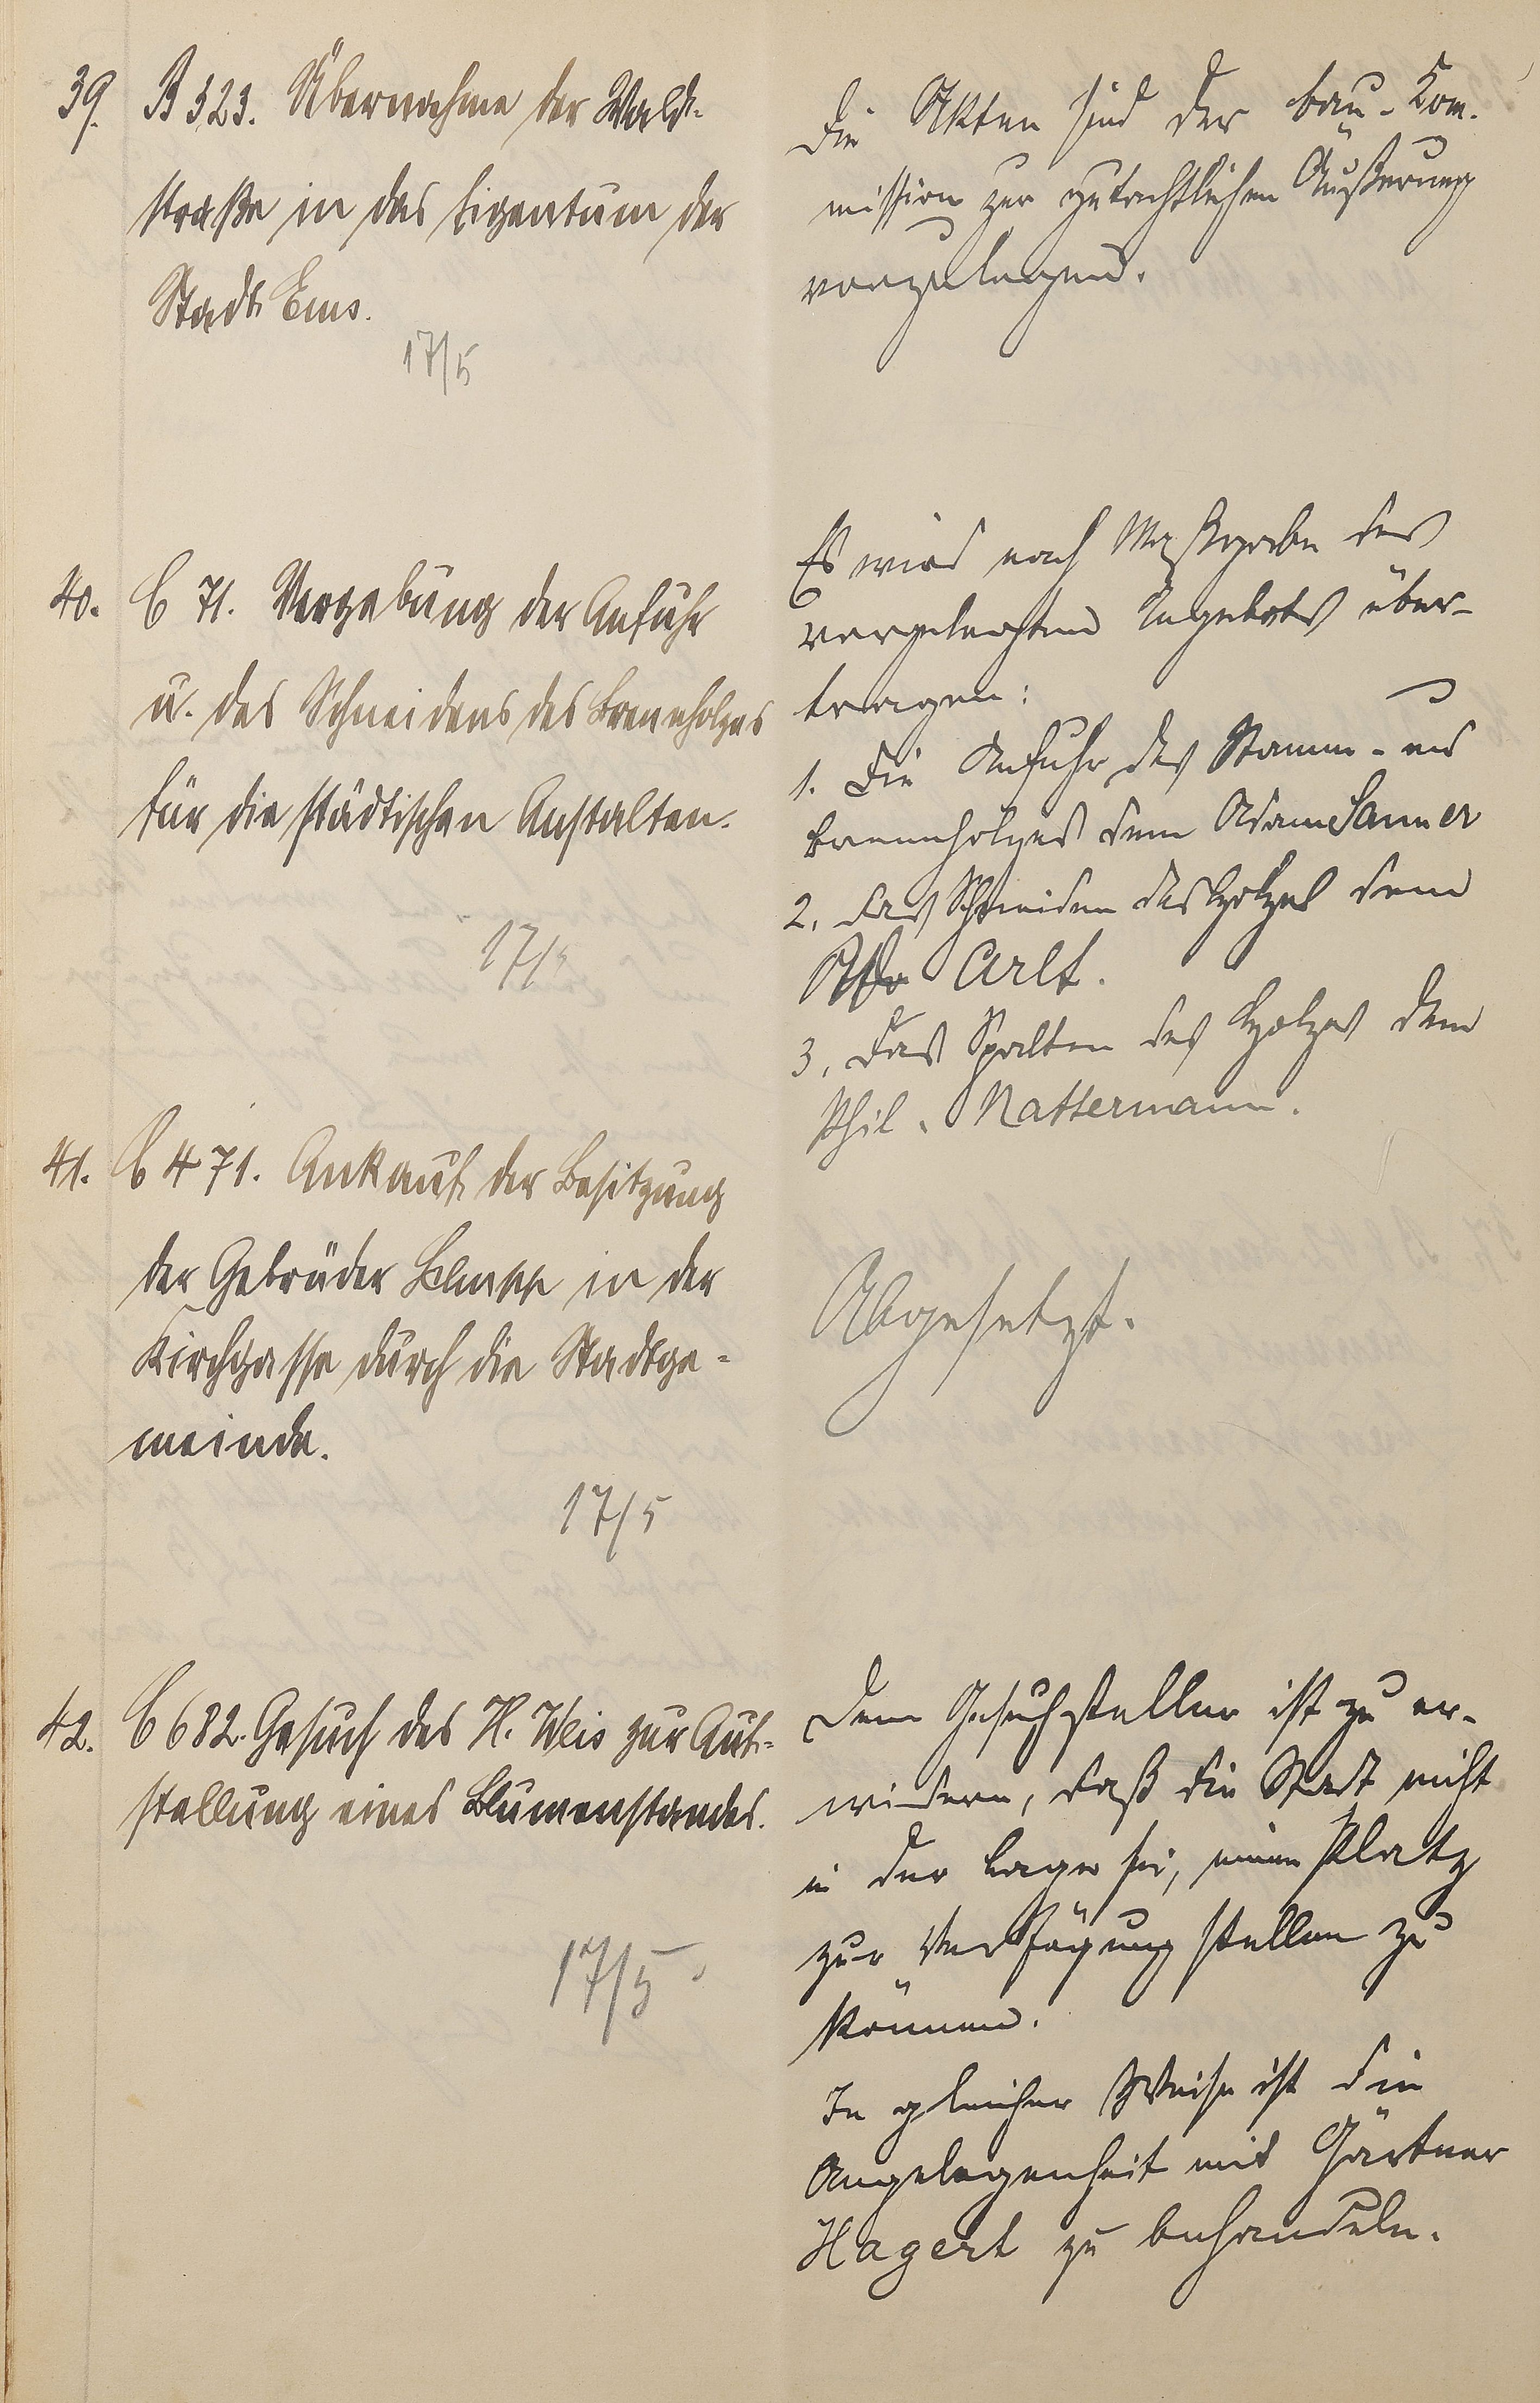 39. B 323. Übernahme der Wald-
straße in das Eigentum der
Stadt Ems.
17/5
Die Akten sind der Bau-Kom-
mission zur gutachtlichen Äußerung
vorzulegen.
40. C 71. Vergebung der Anfuhr
u. des Schneidens des Brennholzes
für die städtischen Anstalten.
17/5
Es wird nach Maßgabe des
vorgelegten Angebots über-
tragen:
1. Die Anfuhr des Stamm- und
Brennholzes dem Adam Sauner
2. Das Schneiden des Holzes dem
Carlt.
3. Das Spalten des Holzes dem
Phil. Nattermann.
41. C 471. Ankauf der Besitzung
der Gebrüder in der
Kirchgasse durch die Stadtge-
meinde.
17/5
Abgesetzt.
42. C 682. Gesuch des H. Weis zur Auf-
stellung eines Blumenstandes.
17/5
Dem Gesuchsteller ist zu er-
widern, daß die Stadt nicht
in der Lage sei, einen Platz
zur Verfügung stellen zu
können.
In gleicher Weise ist die
Angelegenheit mit Gärtner
Hagert zu behandeln.